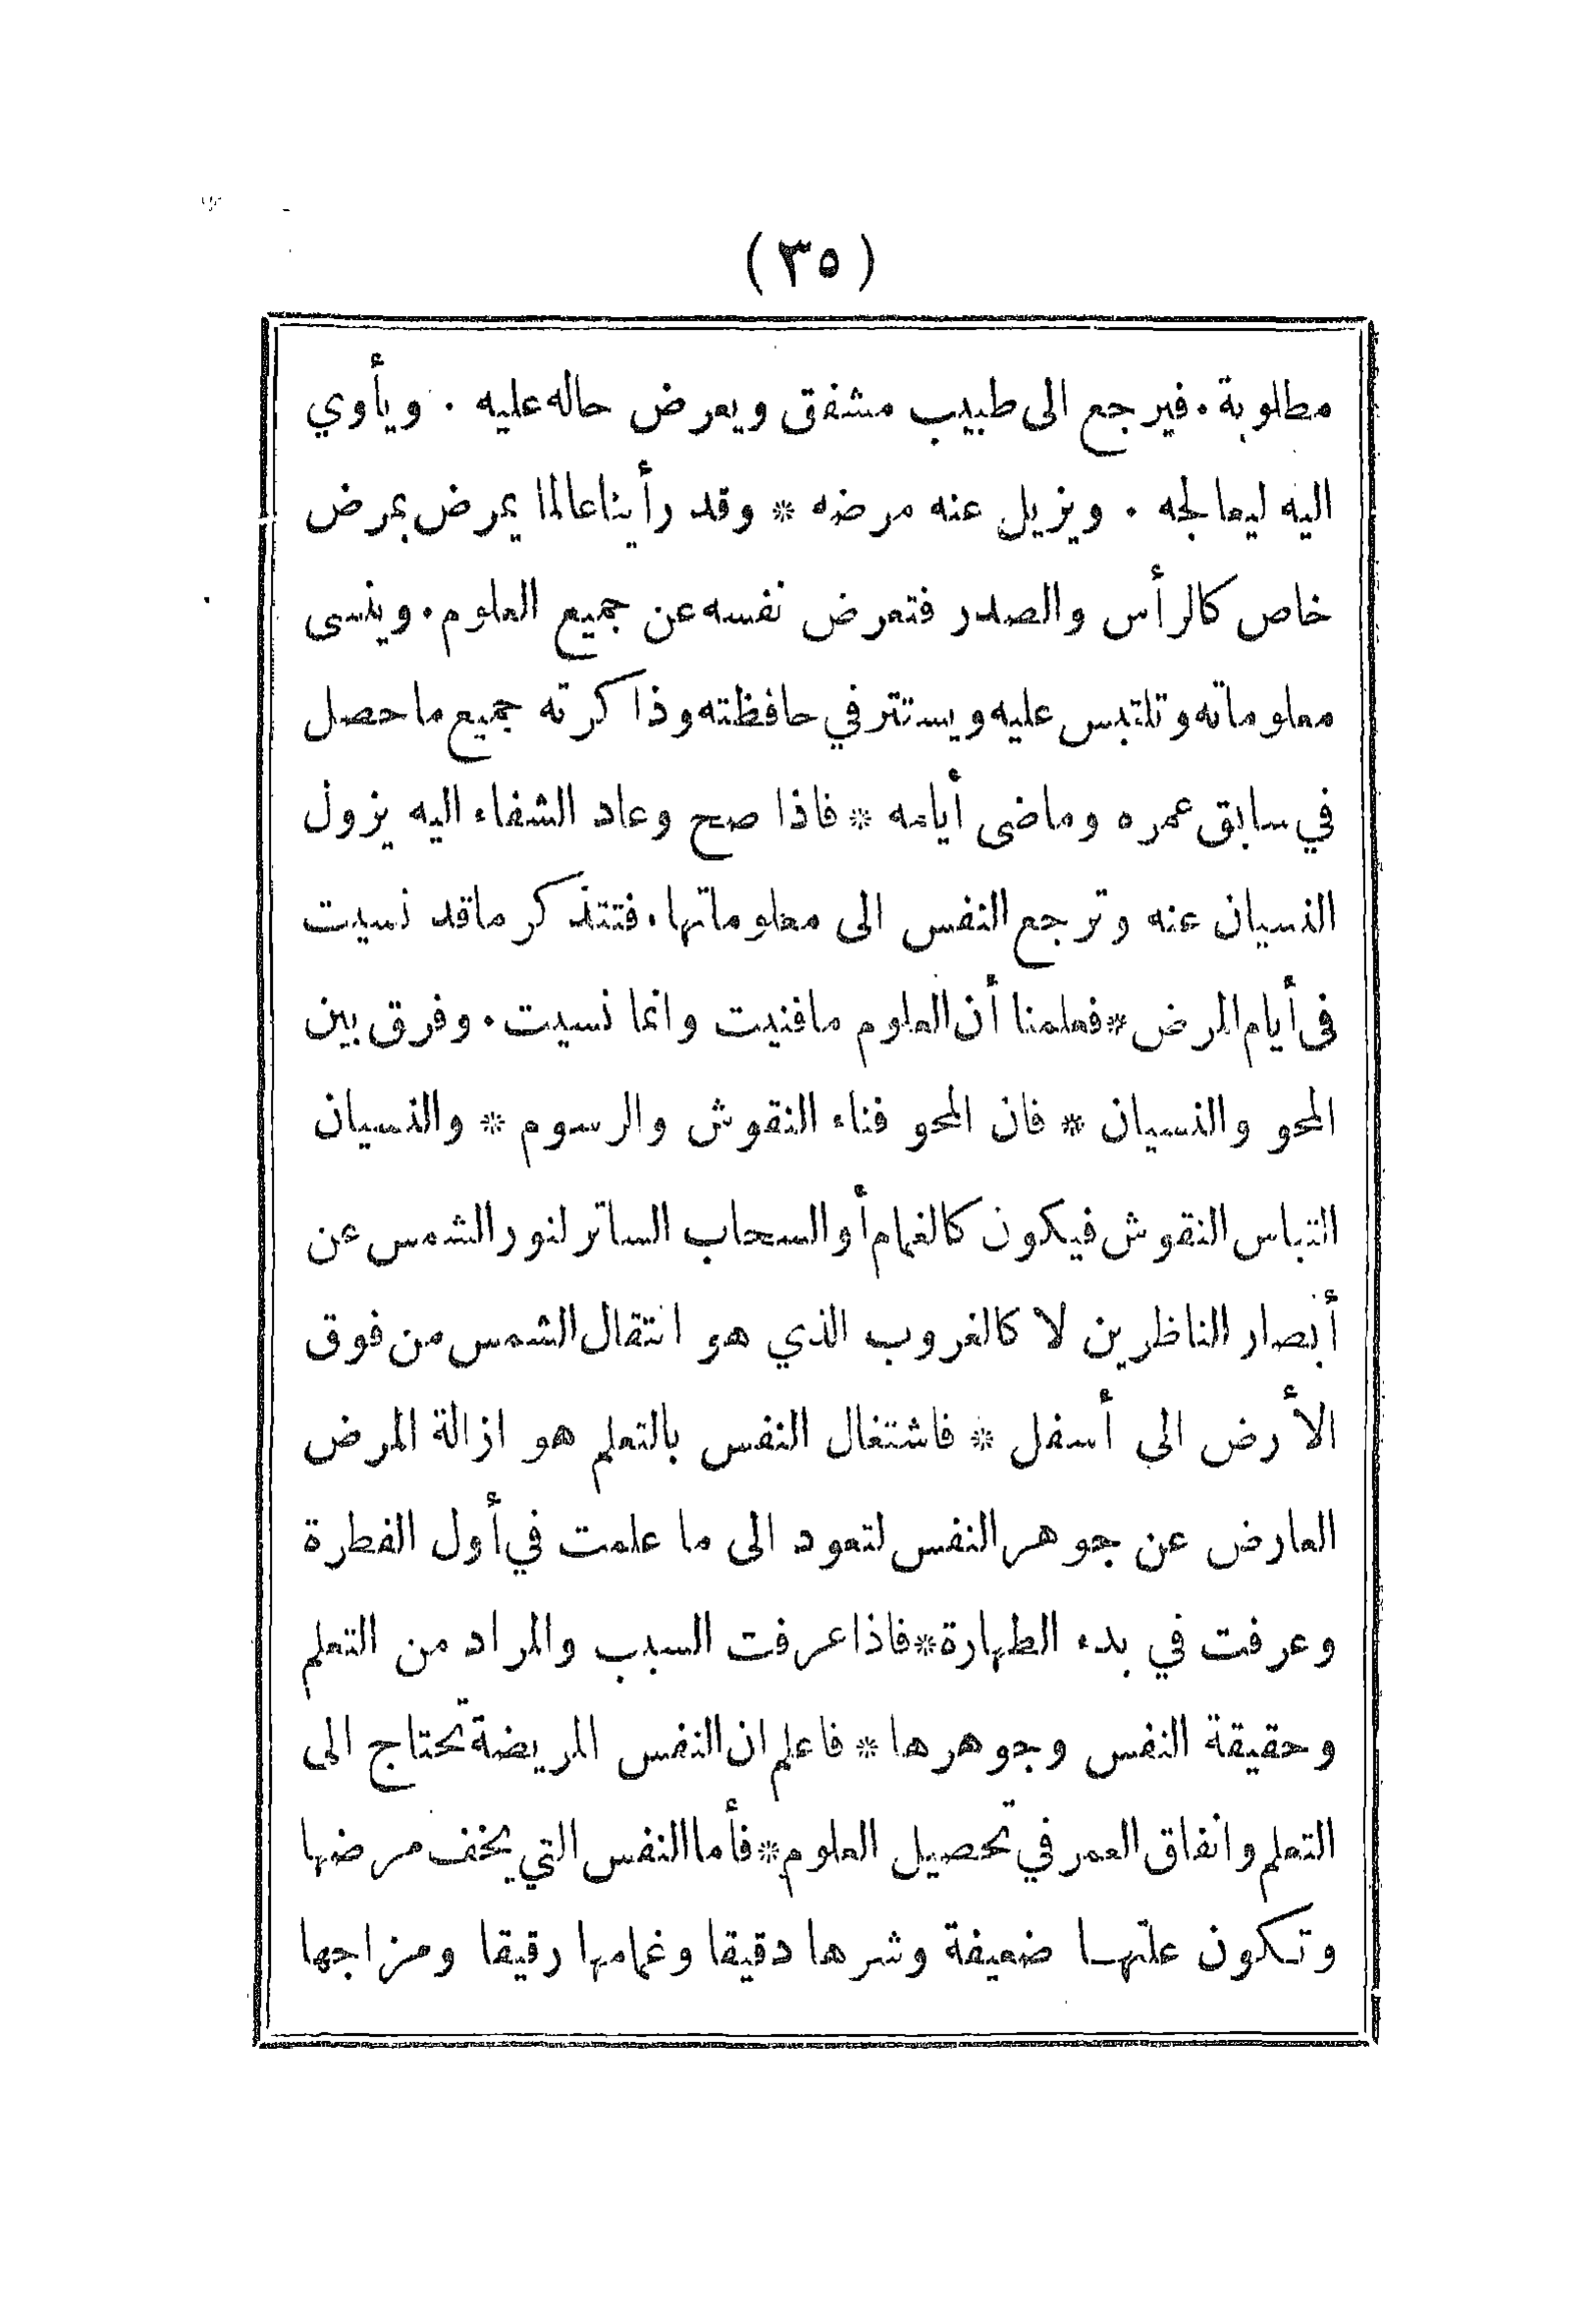 (٣٥)
مطلوبة. فيرجع الى طبيب مشفق ويعرض حاله عليه . ويأوي
اليه ليعالجه . ويزيل عنه مرضه * وقد رأينا عالما يمرض بمرض
خاص كالرأس والصدر فتعرض نفسه عن جميع العلوم. وينسى
معلوماته وتلتبس عليه ويستتر في حافظته وذاكرته جميع ما حصل
في سابق عمره وماضى أيامه * فاذا صح وعاد الشفاء اليه يزول
النسيان عنه وترجع النفس الى معلوماتها. فتتذكر ما قد نسيت
فى أيام المرض * فعلمنا أن العلوم ما فنيت وانما نسيت. وفرق بين
المحو والنسيان * فان المحو فناء النقوش والرسوم * والنسيان
التباس النقوش فيكون كالغمام أو السحاب الساتر لنور الشمس عن
أبصار الناظرين لا كالغروب الذي هو انتقال الشمس من فوق
الأرض الى أسفل * فاشتغال النفس بالتعلم هو ازالة المرض
العارض عن جوهر النفس لتعود الى ما علمت في أول الفطرة
وعرفت في بدء الطهارة * فاذا عرفت السبب والمراد من التعلم
وحقيقة النفس وجوهرها * فاعلم ان النفس المريضة تحتاج الى
التعلم وانفاق العمر في تحصيل العلوم * فأما النفس التي يخف مرضها
وتكون علتها ضعيفة وشرها دقيقا وغمامها رقيقا ومزاجها